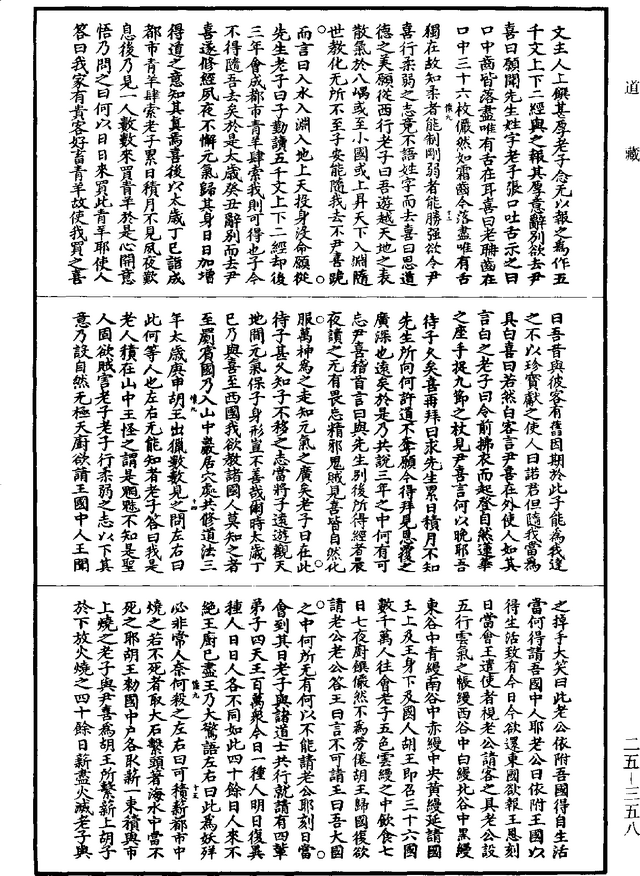 道藏
文王人上饌甚厚老子念无以報之爲作五
千文上下二經與之報其厚意辭別欲去尹
喜曰願聞先生姓字老子張口吐舌示之曰
口中齒皆落盡唯有舌在耳喜曰老聃齒在
口中三十六枚儼然如霜雪今落盡唯有舌
獨在故知柔者能制剛弱者能勝强欲令尹
喜行柔弱之志竟不語姓字而去喜曰思道
德之美願從西行老子曰吾遊越天地之表
散氣於八嵎或至小國或上昇天下入淵隨
世教化无所不至子安能隨我去不尹喜跪
而言曰入水入淵入地上天投身沒命願從
先生老子曰子勤讀五千文上下二經却後
三年會成都市青羊肆索我則可得也子今
不得隨吾去矣於是太歲癸丑辭別而去尹
喜遂修經夙夜不懈元氣歸其身日日加增
得道之意知其真爲喜後以太歲丁巳詣成
都市青羊肆索老子累日積月不見夙夜歎
息後乃見一人數數來買青羊於是心開意
悟乃問之曰何以日日來買此青羊耶使人
荅曰我家有貴客好畜青羊故使我買之喜
曰吾昔與彼客有舊因期於此子能爲我達
之不以珍寶獻之使人曰諾君但隨我當爲
具白喜曰若然白客言尹喜在外使人如其
言白之老子曰令前拂衣而起登自然蓮華
之座手捉九節之杖見尹喜言何以晚耶吾
待子久矣喜再拜曰求先生累日積月不知
先生所向何許道不奪願今得拜見恩覆之
廣深也遠矣於是乃共說三年之中何有可
忘尹喜稽首言曰與先生別後所得經者晨
夜讀之无有畏忌精邪鬼賊見喜皆自然化
服萬神爲之走知元氣之廣矣老子曰在此
待子甚久知子不移之志當將子遠遊觀天
地間元氣保子身形豈不善哉爾時太歲丁
巳乃與喜至西國我欲教諸國人莫知之者
至罽賓國乃入山中巖居穴處共修道法三
年太歲庚申胡王出獵數數見之問左右曰
此何等人也左右无能知者老子荅曰我是
老人積在山中王怪之謂是魍魎不知是聖
人固欲賊害老子老子行柔弱之志以下其
意乃設自然无極天廚欲請王國中人王聞
之撑手大笑曰此老公依附吾國得自生活
當何得請吾國中人耶老公曰依附王國以
得生活致有今日今欲還東國欲報王恩刻
日當會王遣使者視老公請客之具老公設
五行雲氣之帳縵西谷中白縵北谷中黑縵
東谷中青縵南谷中赤縵中央黃縵延請國
王上及王身下及國人胡王即召三十六國
數千萬人往會老子五色雲縵之中飲食七
日七夜廚饌儼然不爲勞倦胡王歸國復欲
請老公老公荅王曰言不可請王曰吾大國
之中何所无有何以不能請老公耶刻日當
會到其日老子與諸道士共行就請有四輩
弟子四天王百萬衆今日一種人明日復異
種人日日人各不同如此四十餘日人來不
絶王廚已盡王乃大驚語左右曰此爲妖殃
必非常人奈何殺之左右曰可積薪都市中
燒之若不死者取大石繫頸著海水中當不
死之耶胡王勑國中戶各取薪一束積與市
上燒之老子與尹喜爲胡王所繫薪上胡子
於下放火燒之四十餘日薪盡火滅老子與
二五-三五八